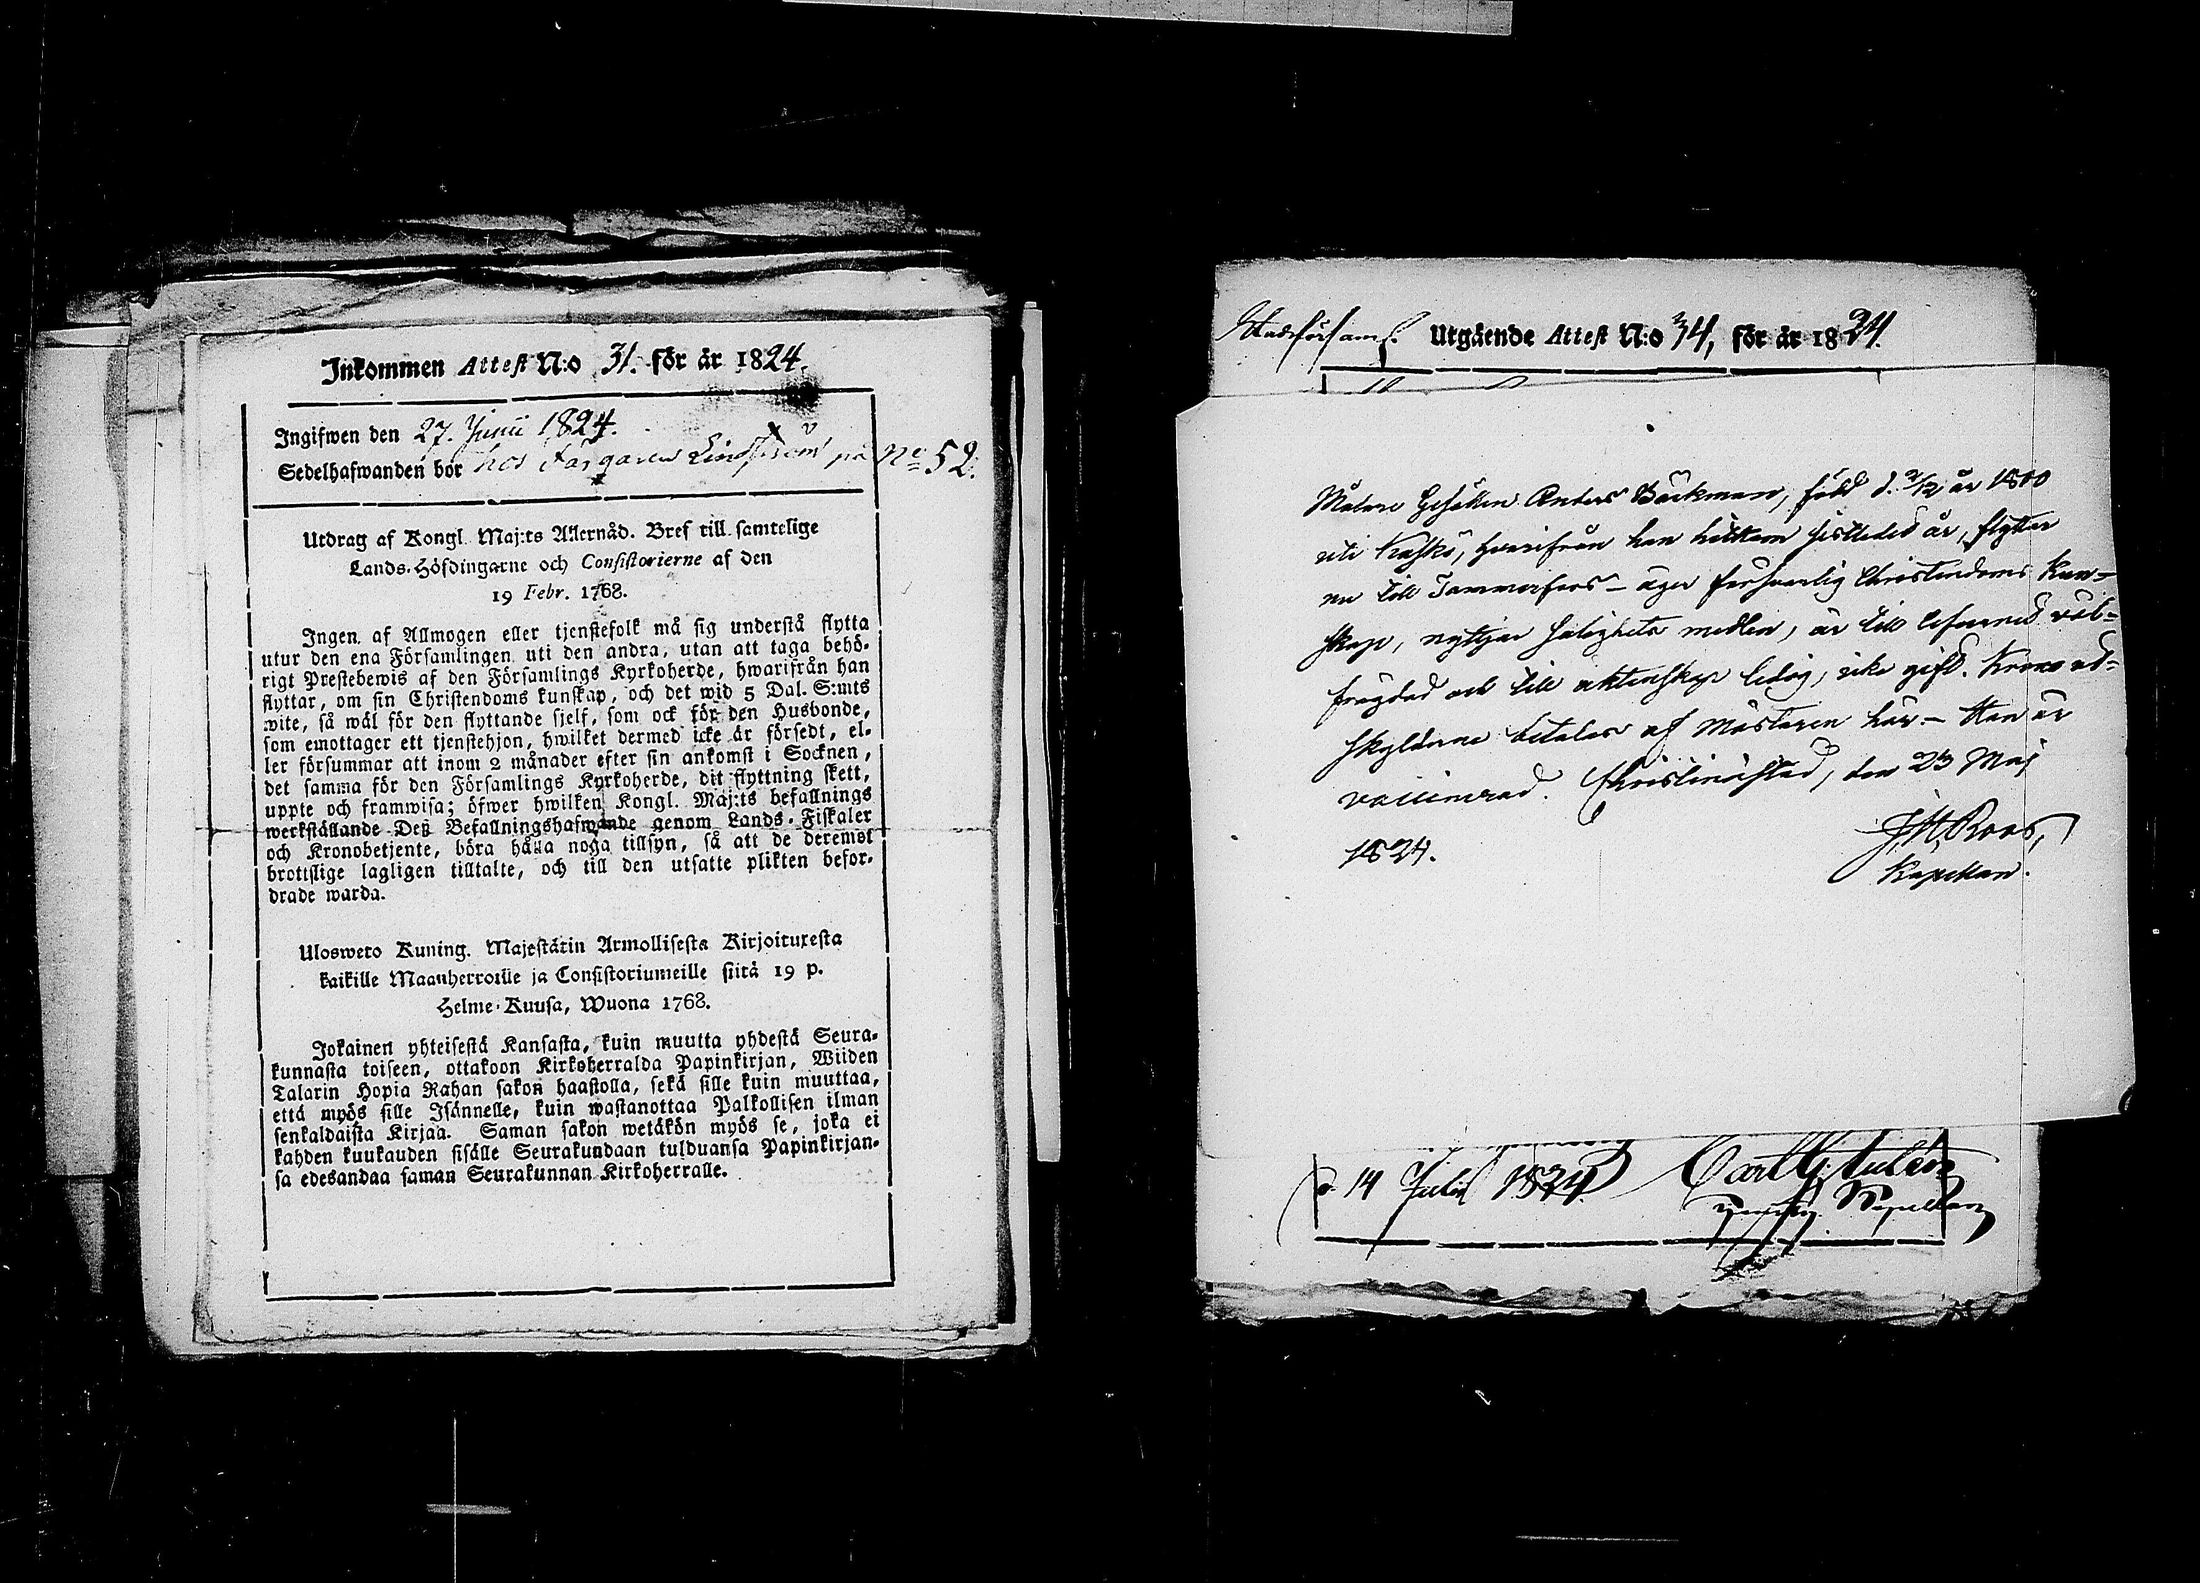 Inkommen Attest N:o 31. för år 1824.
Ingifwen den 27. Junii 1824.
Sedelhafwanden bor hos Färgaren Lindström på No 52.
Utdrag af Kongl. Maj:ts Allernåd. Bref till samtelige
Lands-Höfdingarne och Consistorierne af den
19 Febr. 1768.
Ingen af Allmogen eller tjenstefolk må sig understå flytta
utur den ena Församlingen uti den andra, utan att taga behö-
rigt Prestebewis af den Församlings Kyrkoherde, hwarifrån han
flyttar, om sin Christendoms kunskap, och det wid 5 Dal. S:mts
wite, så wäl för den flyttande sjelf, som ock för den Husbonde,
som emottager ett tjenstehjon, hwilket dermed icke är försedt, el-
ler försummar att inom 2 månader efter sin ankomst i Socknen,
det samma för den Församlings Kyrkoherde, dit flyttning skett,
uppte och framwisa; öfwer hwilken Kongl. Maj:ts befallnings
werkställande Deß Befallningshafwande genom Lands-Fiskaler
och Kronobetjente, böra hålla noga tillsyn, så att de deremot
brottslige lagligen tilltalte, och till den utsatte plikten befor-
drade warda.
Ulosweto Kuning. Majestätin Armollisesta Kirjoituxesta
kaikille Maanherroille ja Consistoriumeille siitä 19 p.
Helme-Kuusa, Wuona 1768.
Jokainen yhteisestä Kansasta, kuin muutta yhdestä Seura-
kunnasta toiseen, ottakoon Kirkoherralda Papinkirjan, Wiiden
Talarin Hopia Rahan sakon haastolla, sekä sille kuin muuttaa,
että myös sille Isännelle, kuin wastanottaa Palkollisen ilman
senkaldaista Kirjaa. Saman sakon wetäkön myös se, joka ei
kahden kuukauden sisälle Seurakundaan tulduansa Papinkirjan-
sa edesandaa saman Seurakunnan Kirkoherralle.
Stadsförsaml. Utgående Attest N:o 34, för år 1824.
Målare Gesällen Anders Bäckman, född d. 2/12 år 1800
uti Kaskö, hvarifrån han hitkom sistledit år, flyttar
nu till Tammerfors – äger försvarlig Christendoms kun-
skap, nyttjar salighets medlen, är till lefverned väl-
frägdad och till äktenskap ledig, icke gift. Krono ut-
skylderne betalas af Mästaren här – Han är
vaccinerad. Christinæstad, den 23 Maj
1824.
J. H. Roos,
Kapellan.
d. 14 Julii 1824. Carl G.